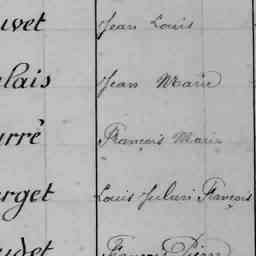 uvet Jean Louis
elais Jean Marie
urré François Marie
erget Louis Julien François
udet François Pierre